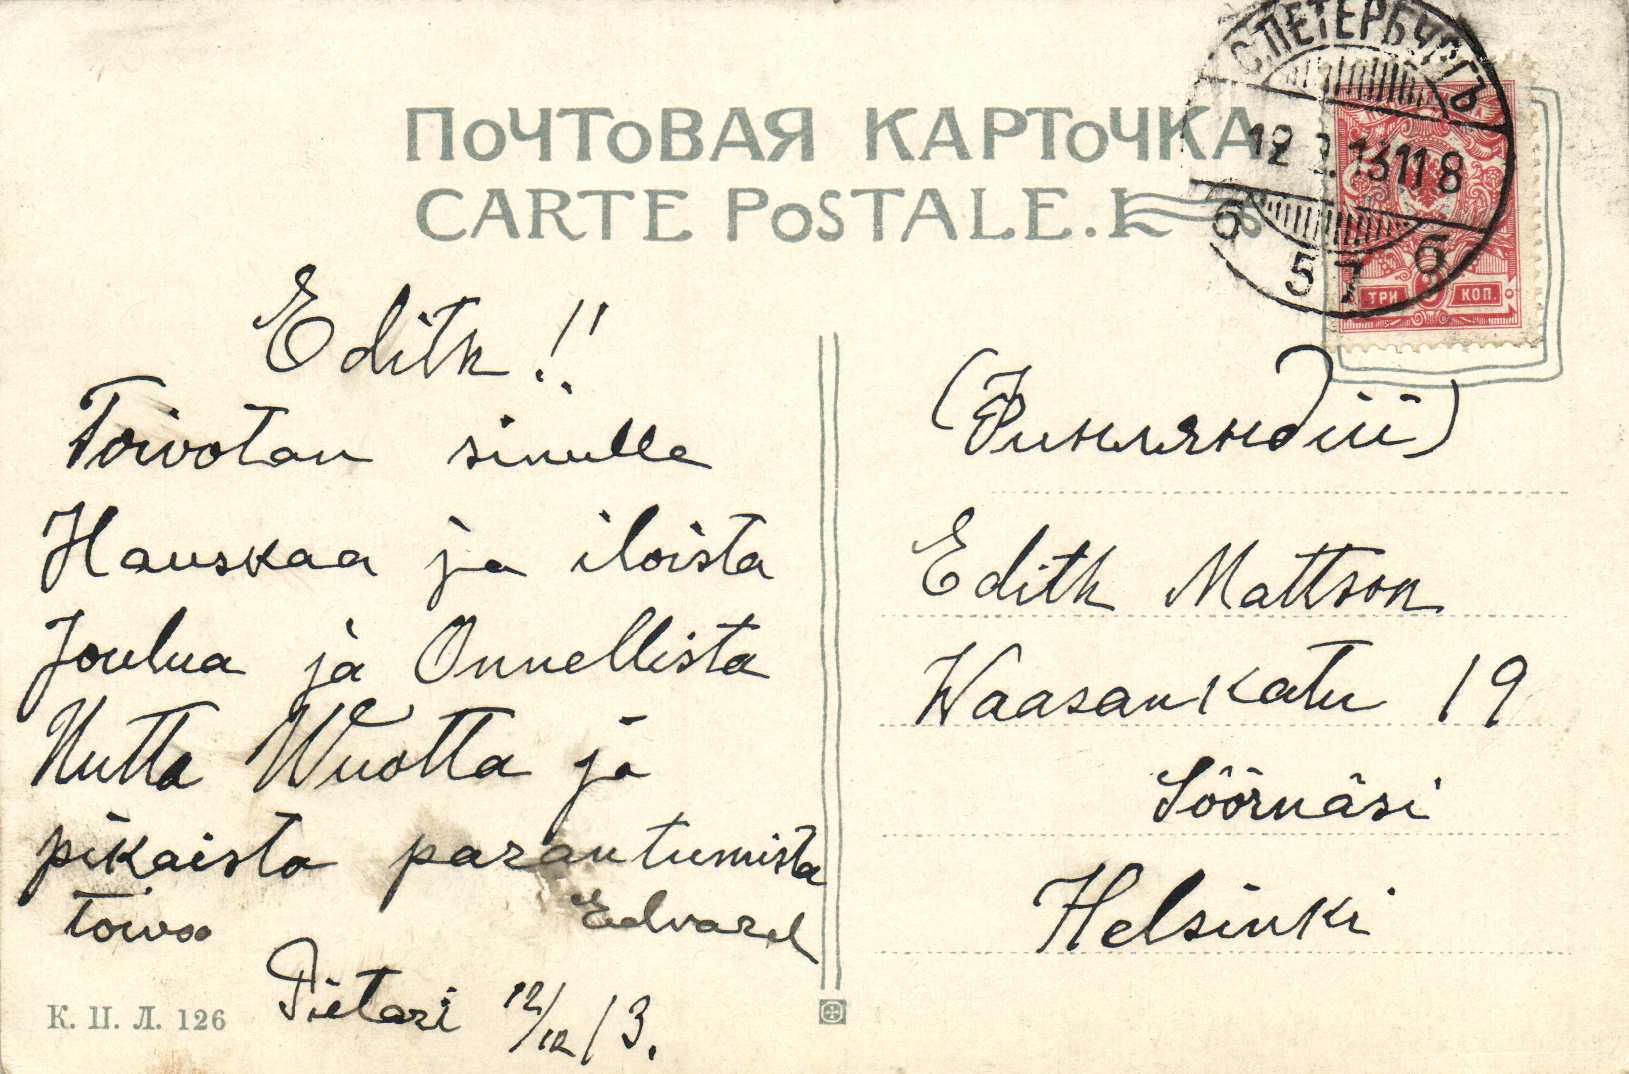 ПОЧТОВАЯ КАРТОЧКА
CARTE POSTALE.
С.ПЕТЕРБУРГЪ
12 13 11 8
б 57 б
ТРИ 3 КОП.
Edith !!
Toivotan sinulle
Hauskaa ja iloista
Joulua ja Onnellista
Uutta Wuotta ja
pikaista parantumista
toivoo Edvard
Pietari 12/12 13.
К. П. Л. 126
(Финляндіи)
Edith Mattson
Waasankatu 19
Söörnäsi
Helsinki